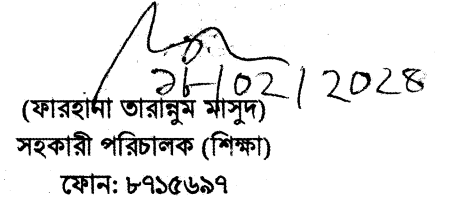 (ফারহানা তারান্নুম মাসুদ)
সহকারী পরিচালক (শিক্ষা)
ফোন: ৮৭১৫৬৯৭